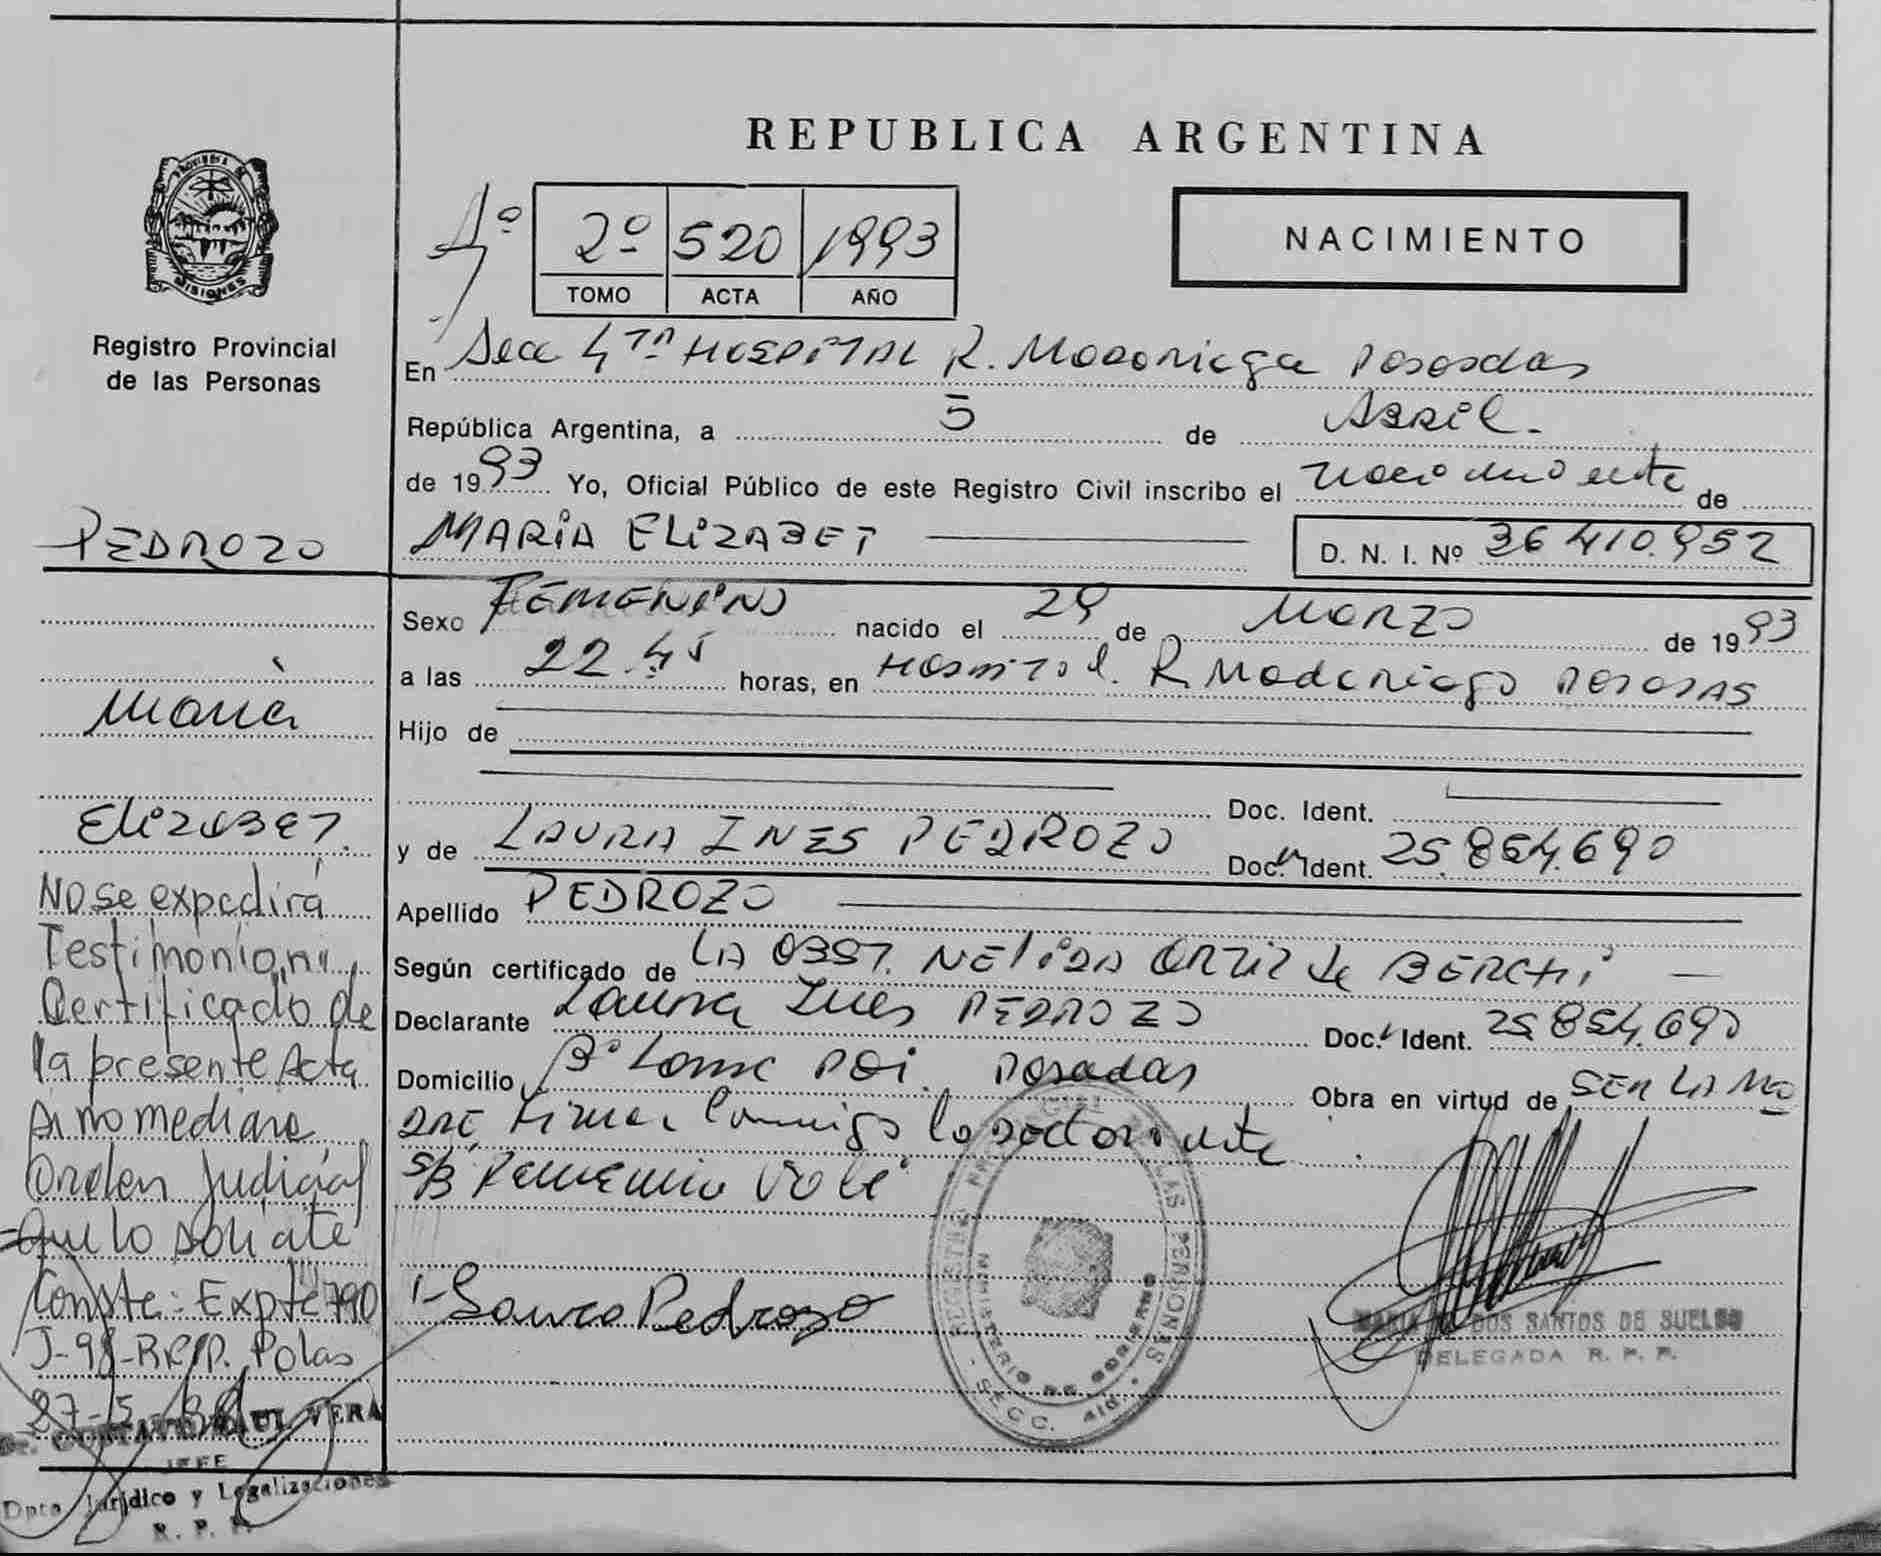 REPUBLICA ARGENTINA
PROVINCIA DE
MISIONES
Registro Provincial
de las Personas
2º 520 1993
TOMO ACTA AÑO
NACIMIENTO
En Secc 4TA HOSPITAL R. Madariaga Posadas
República Argentina, a 5 de ABRIL.-
de 1993 Yo, Oficial Público de este Registro Civil inscribo el nacimiento de
PEDROZO
MARIA ELIZABET
D. N. I. Nº 36 410.952
Sexo FEMENINO nacido el 29 de MARZO de 1993
a las 22.45 horas, en HOSPITAL. R Madariaga POSADAS
Hijo de
Doc. Ident.
y de LAURA INES PEDROZO Doc. Ident. 25.854.690
Apellido PEDROZO
Según certificado de LA OBST. NELIDA ORTIZ de BERCHI
Declarante Laura Ines PEDROZO Doc. Ident. 25 854.690
Domicilio Bº Lomc POI. Posadas Obra en virtud de SER LA MA
DRE, Firma Conmigo la declarante
S/B Femenino Vale
1- Laura Pedrozo
REGISTRO PROVINCIAL DE LAS PERSONAS
MINISTERIO DE GOBIERNO
SECC. 4ta.
MARIA DOS SANTOS DE SUELDO
DELEGADA R. P. P.
María
Elizabet.
No se expedirá
Testimonio, ni
Certificado de
la presente Acta
si no mediare
Orden Judicial
que lo solicite
Conste: Expte 790
J-98-R.P.P. Pdas
27-5-98
Dr. GUSTAVO RAUL VERA
JEFE
Dpto. Jurídico y Legalizaciones
R. P. P.